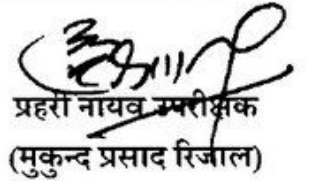 प्रहरी नायव उपरीक्षक
(मुकुन्द प्रसाद रिजाल)